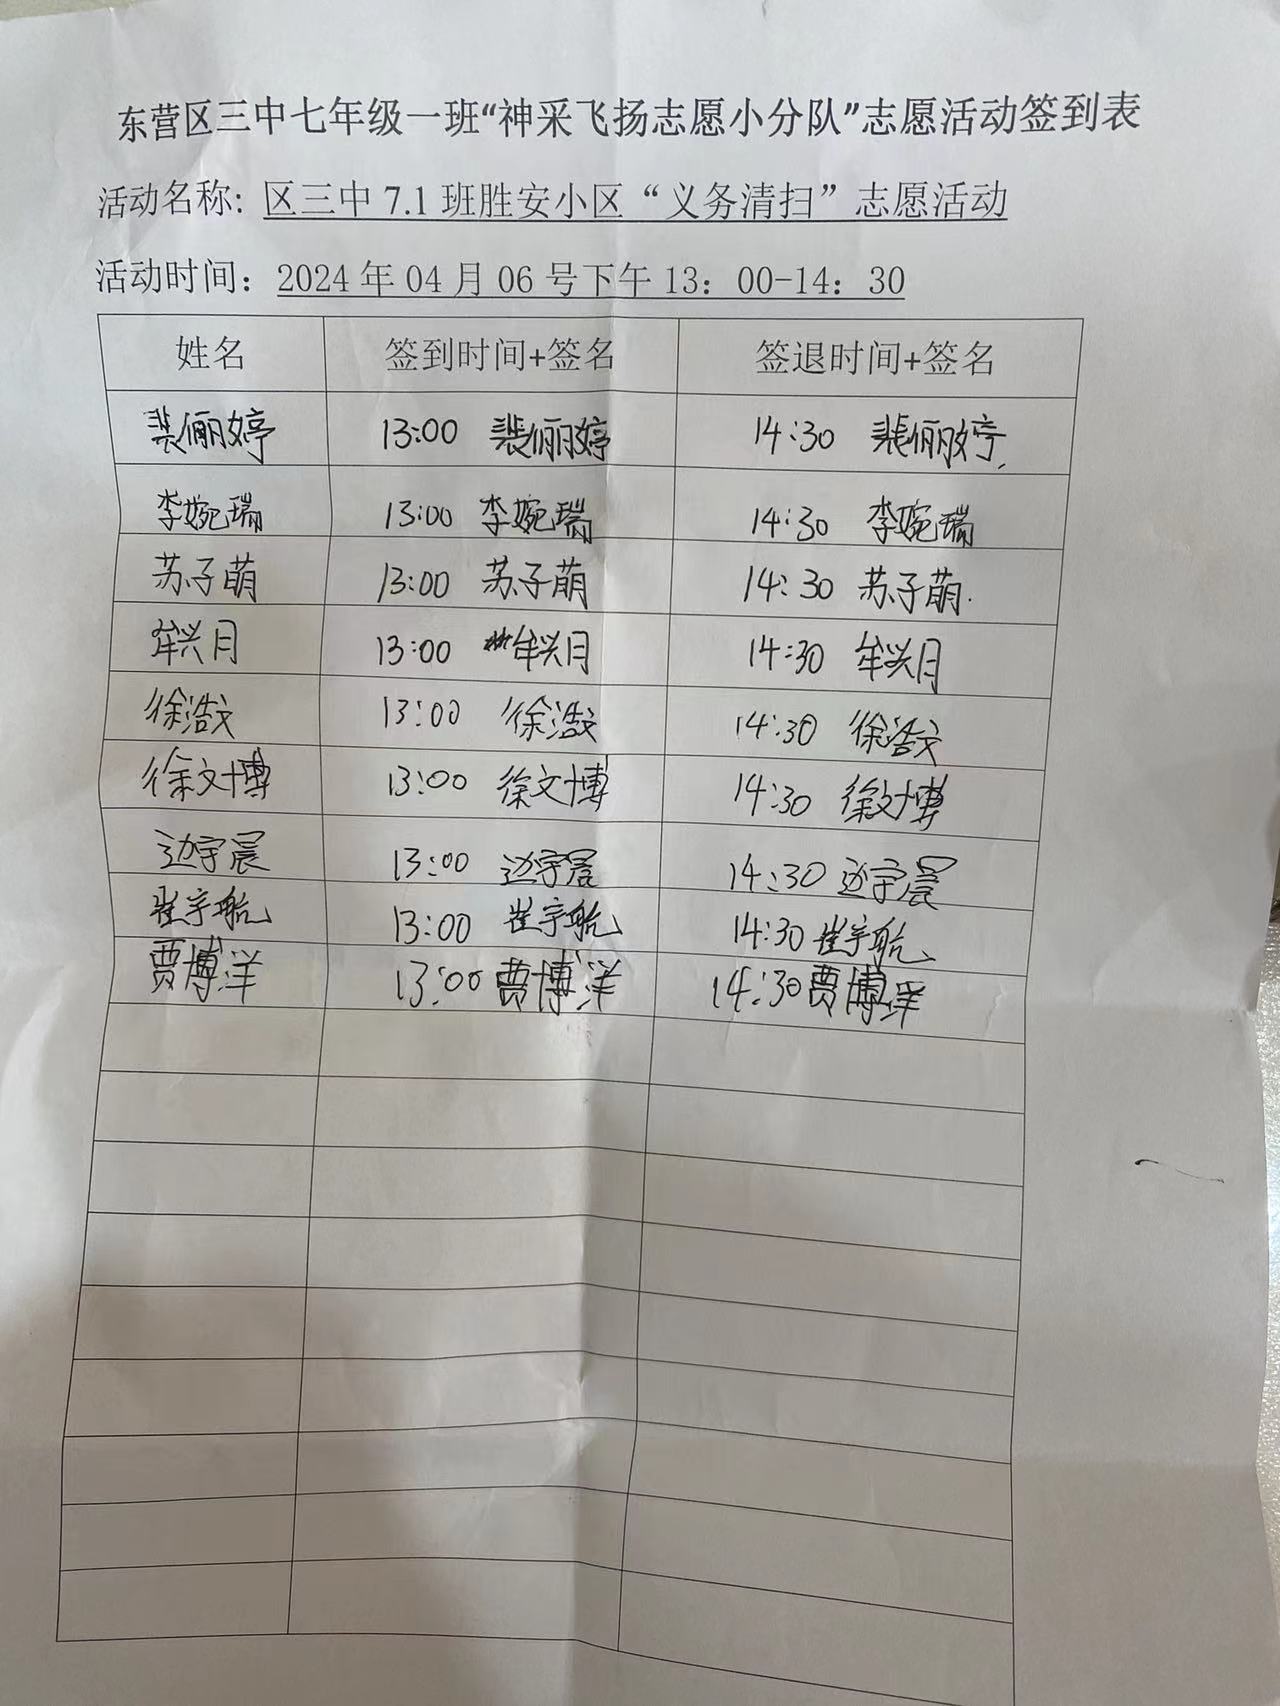 东营区三中七年级一班“神采飞扬志愿小分队”志愿活动签到表
活动名称: 区三中 7.1 班胜安小区“义务清扫”志愿活动
活动时间: 2024 年 04 月 06 号下午 13: 00-14: 30
姓名 签到时间+签名 签退时间+签名
裴俪婷 13:00 裴俪婷 14:30 裴俪婷
李婉瑞 13:00 李婉瑞 14:30 李婉瑞
苏子萌 13:00 苏子萌 14:30 苏子萌
牟兴月 13:00 牟兴月 14:30 牟兴月
徐浩文 13:00 徐浩文 14:30 徐浩文
徐文博 13:00 徐文博 14:30 徐文博
边宇晨 13:00 边宇晨 14:30 边宇晨
崔宇航 13:00 崔宇航 14:30 崔宇航
贾博洋 13:00 贾博洋 14:30 贾博洋